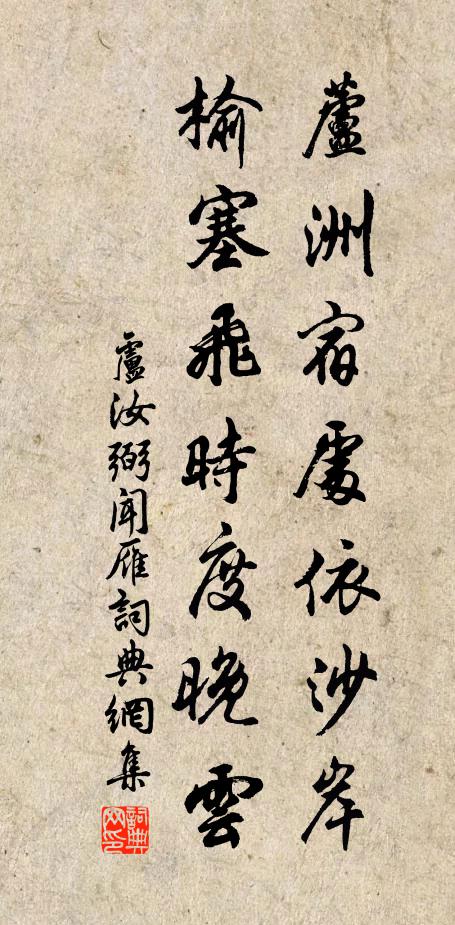 蘆洲宿處依沙岸
榆塞飛時度晚雲
盧汝弼聞雁詞典網集
詞典网印